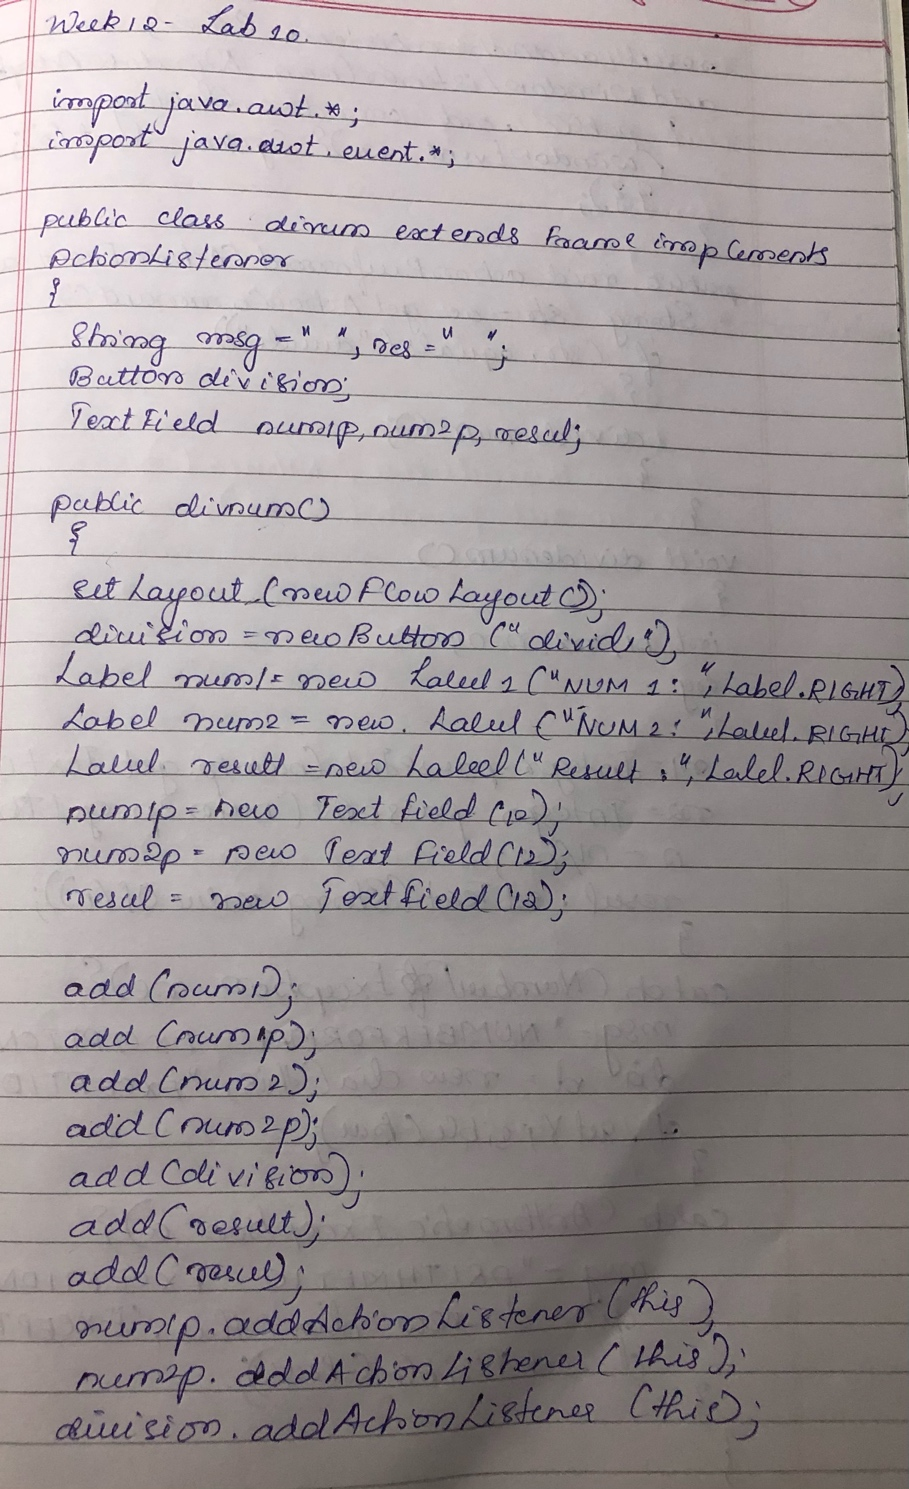 Week 12 - Lab 10.
import java.awt.*;
import java.awt.event.*;
public class divnum extends Frame implements
ActionListennor
{
String msg = " ", res = " ";
Button division;
TextField num1p, num2p, resul;
public divnum()
{
set Layout (new Flow Layout());
division = new Button ("divide");
Label num1 = new Label 1 ("NUM 1: ", Label.RIGHT);
Label num2 = new. Label ("NUM 2: ", Label. RIGHT);
Label. result = new Label ("Result : ", Label.RIGHT);
num1p = new Text field (12);
num2p = new Text Field (12);
resul = new Text field (12);
add (num1);
add (num1p);
add (num2);
add (num2p);
add (division);
add (result);
add (resul);
num1p.addActionListener (this),
num2p. addActionListener (this);
division.addActionListener (this);